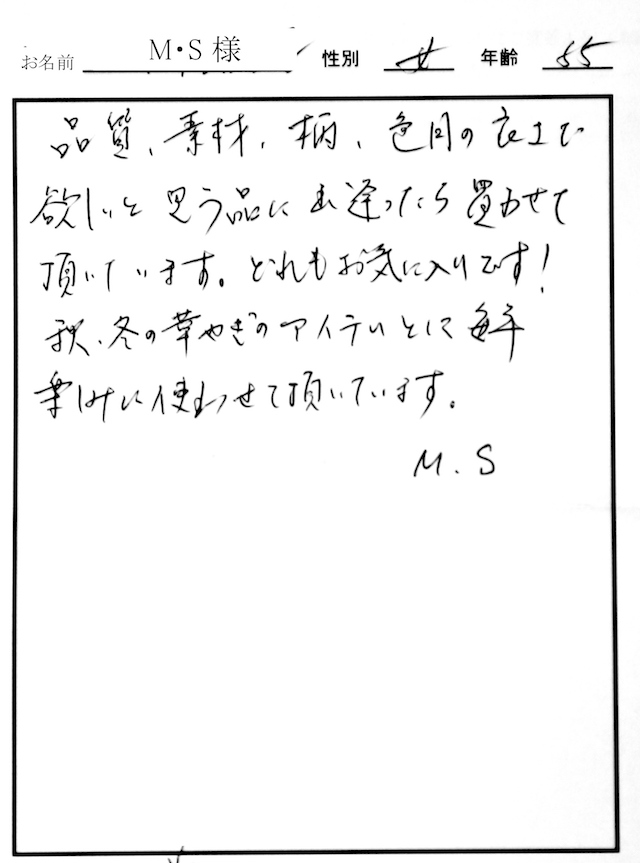 お名前 M・S様 性別 女 年齢 55
品質、素材、柄、色目の良さで
欲しいと思う品に出逢ったら買わせて
頂いています。どれもお気に入りです!
秋、冬の華やぎのアイテムとして毎年
楽しみに使わせて頂いています。
M.S